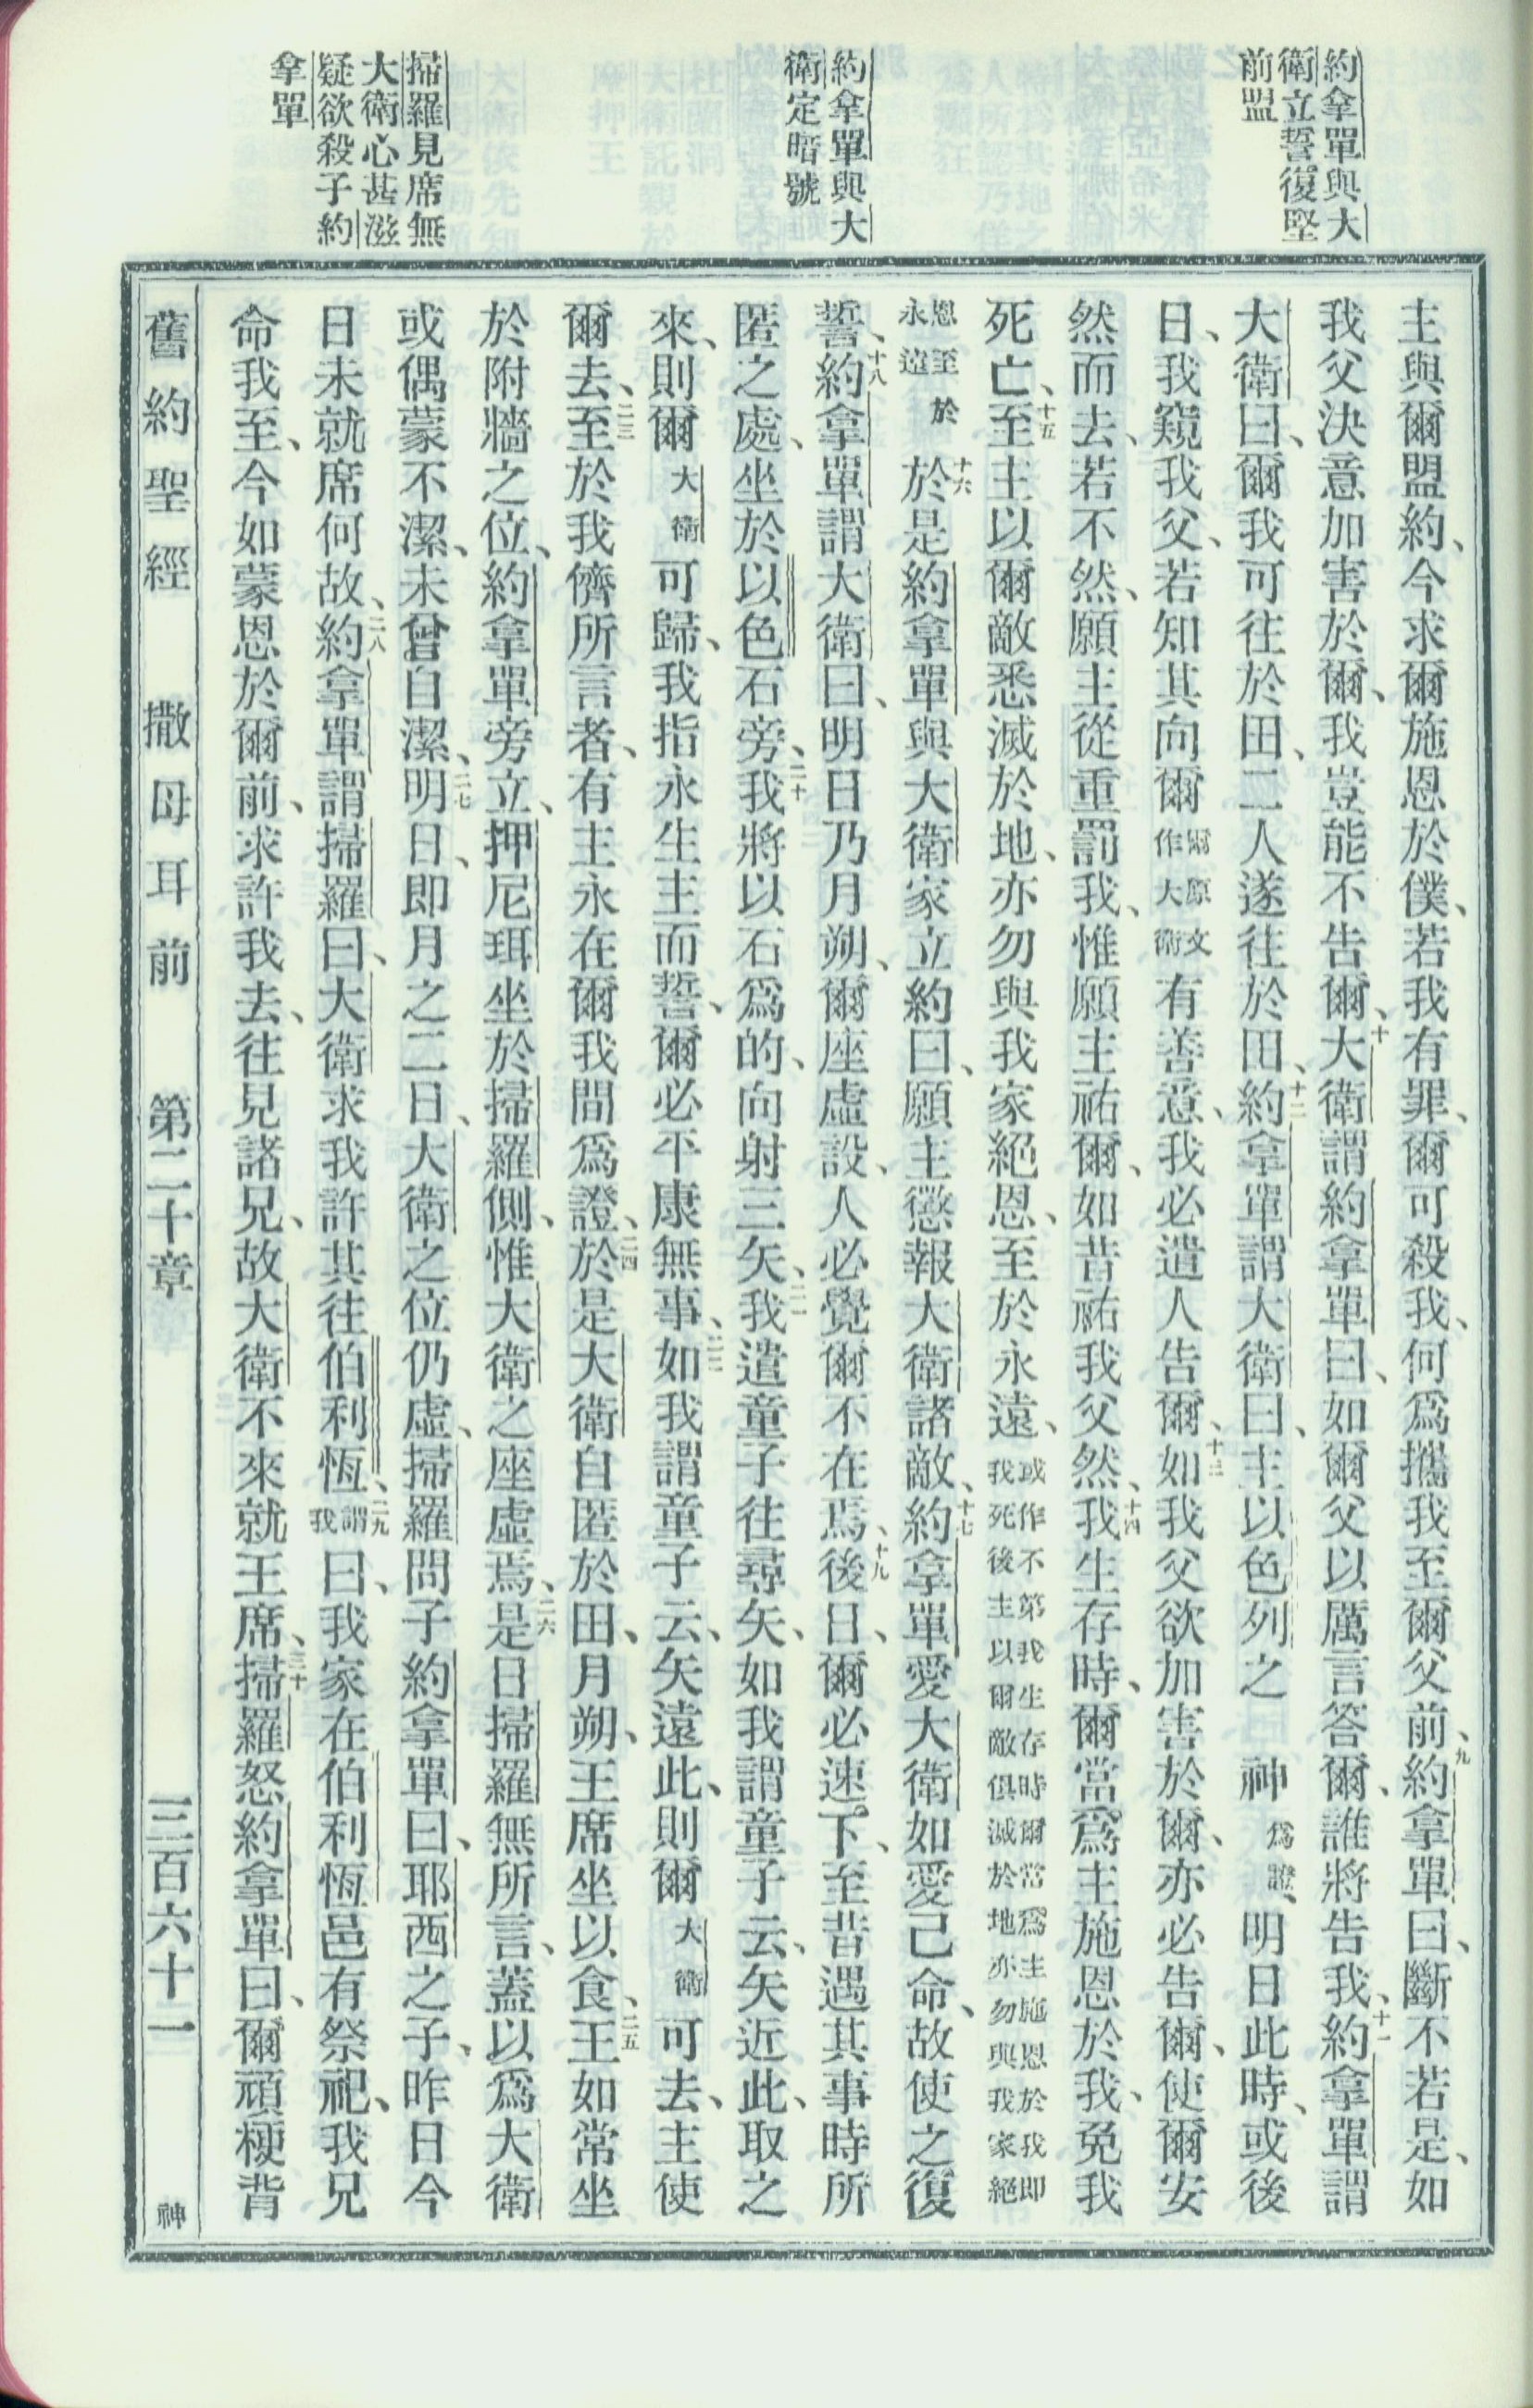 約拿單與大
衛立誓復堅
前盟
約拿單與大
衛定暗號
掃羅見席無
大衛心甚滋
疑欲殺子約
拿單
主與爾盟約、今求爾施恩於僕、若我有罪、爾可殺我、何爲攜我至爾父前、九約拿單曰、斷不若是、如
我父決意加害於爾、我豈能不告爾、十大衛謂約拿單曰、如爾父以厲言答爾、誰將告我、十一約拿單謂
大衛曰、爾我可往於田、二人遂往於田、十二約拿單謂大衛曰、主以色列之 神爲證、明日此時、或後
日、我窺我父、若知其向爾爾原文作大衛有善意、我必遣人告爾、十三如我父欲加害於爾、亦必告爾、使爾安
然而去、若不然、願主從重罰我、惟願主祐爾、如昔祐我父然、十四我生存時、爾當爲主施恩於我、免我
死亡、十五至主以爾敵悉滅於地、亦勿與我家絕恩、至於永遠、或作不第我生存時爾當爲主施恩於我即我死後主以爾敵俱滅於地亦勿與我家絕
恩至於永遠 十六於是約拿單與大衛家立約曰、願主懲報大衛諸敵、十七約拿單愛大衛如愛己命、故使之復
誓、十八約拿單謂大衛曰、明日乃月朔、爾座虛設、人必覺爾不在焉、十九後日、爾必速下、至昔遇其事時所
匿之處、坐於以色石旁、二十我將以石爲的、向射三矢、二一我遣童子往尋矢、如我謂童子云、矢近此、取之
來、則爾大衛可歸、我指永生主而誓、爾必平康無事、二二如我謂童子云、矢遠此、則爾大衛可去、主使
爾去、二三至於我儕所言者、有主永在爾我間爲證、二四於是大衛自匿於田、月朔、王席坐以食、二五王如常坐
於附牆之位、約拿單旁立、押尼珥坐於掃羅側、惟大衛之座虛焉、二六是日掃羅無所言、蓋以爲大衛
或偶蒙不潔、未曾自潔、二七明日、卽月之二日、大衛之位仍虛、掃羅問子約拿單曰、耶西之子、昨日今
日未就席何故、二八約拿單謂掃羅曰、大衛求我許其往伯利恆、二九謂我曰、我家在伯利恆邑有祭祀、我兄
命我至、今如蒙恩於爾前、求許我去、往見諸兄、故大衛不來就王席、三十掃羅怒約拿單曰、爾頑梗背
舊約聖經 撒母耳前 第二十章 三百六十一 神